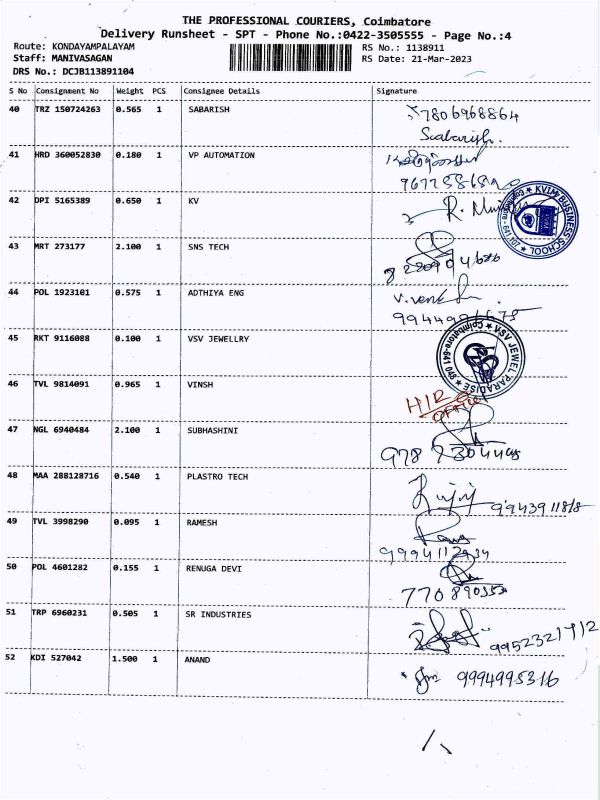 THE PROFESSIONAL COURIERS, Coimbatore
Delivery Runsheet - SPT - Phone No.:0422-3505555 - Page No.:4
Route: KONDAYAMPALAYAM
Staff: MANIVASAGAN
DRS No.: DCJB113891104
RS No.: 1138911
RS Date: 21-Mar-2023
S No Consignment No Weight PCS Consignee Details Signature
40 TRZ 150724263 0.565 1 SABARISH 7806968864
Sabarish.
41 HRD 360052830 0.180 1 VP AUTOMATION
42 DPI 5165389 0.650 1 KV
KVIM BUSINESS SCHOOL
Coimbatore - 641 107
43 MRT 273177 2.100 1 SNS TECH
44 POL 1923101 0.575 1 ADTHIYA ENG
45 RKT 9116088 0.100 1 VSV JEWELLRY
VSV JEWEL PARADISE
46 TVL 9814091 0.965 1 VINSH
OFFICE
47 NGL 6940484 2.100 1 SUBHASHINI
48 MAA 288128716 0.540 1 PLASTRO TECH
49 TVL 3998290 0.095 1 RAMESH
50 POL 4601282 0.155 1 RENUGA DEVI
51 TRP 6960231 0.505 1 SR INDUSTRIES
52 KDI 527042 1.500 1 ANAND 9994995316